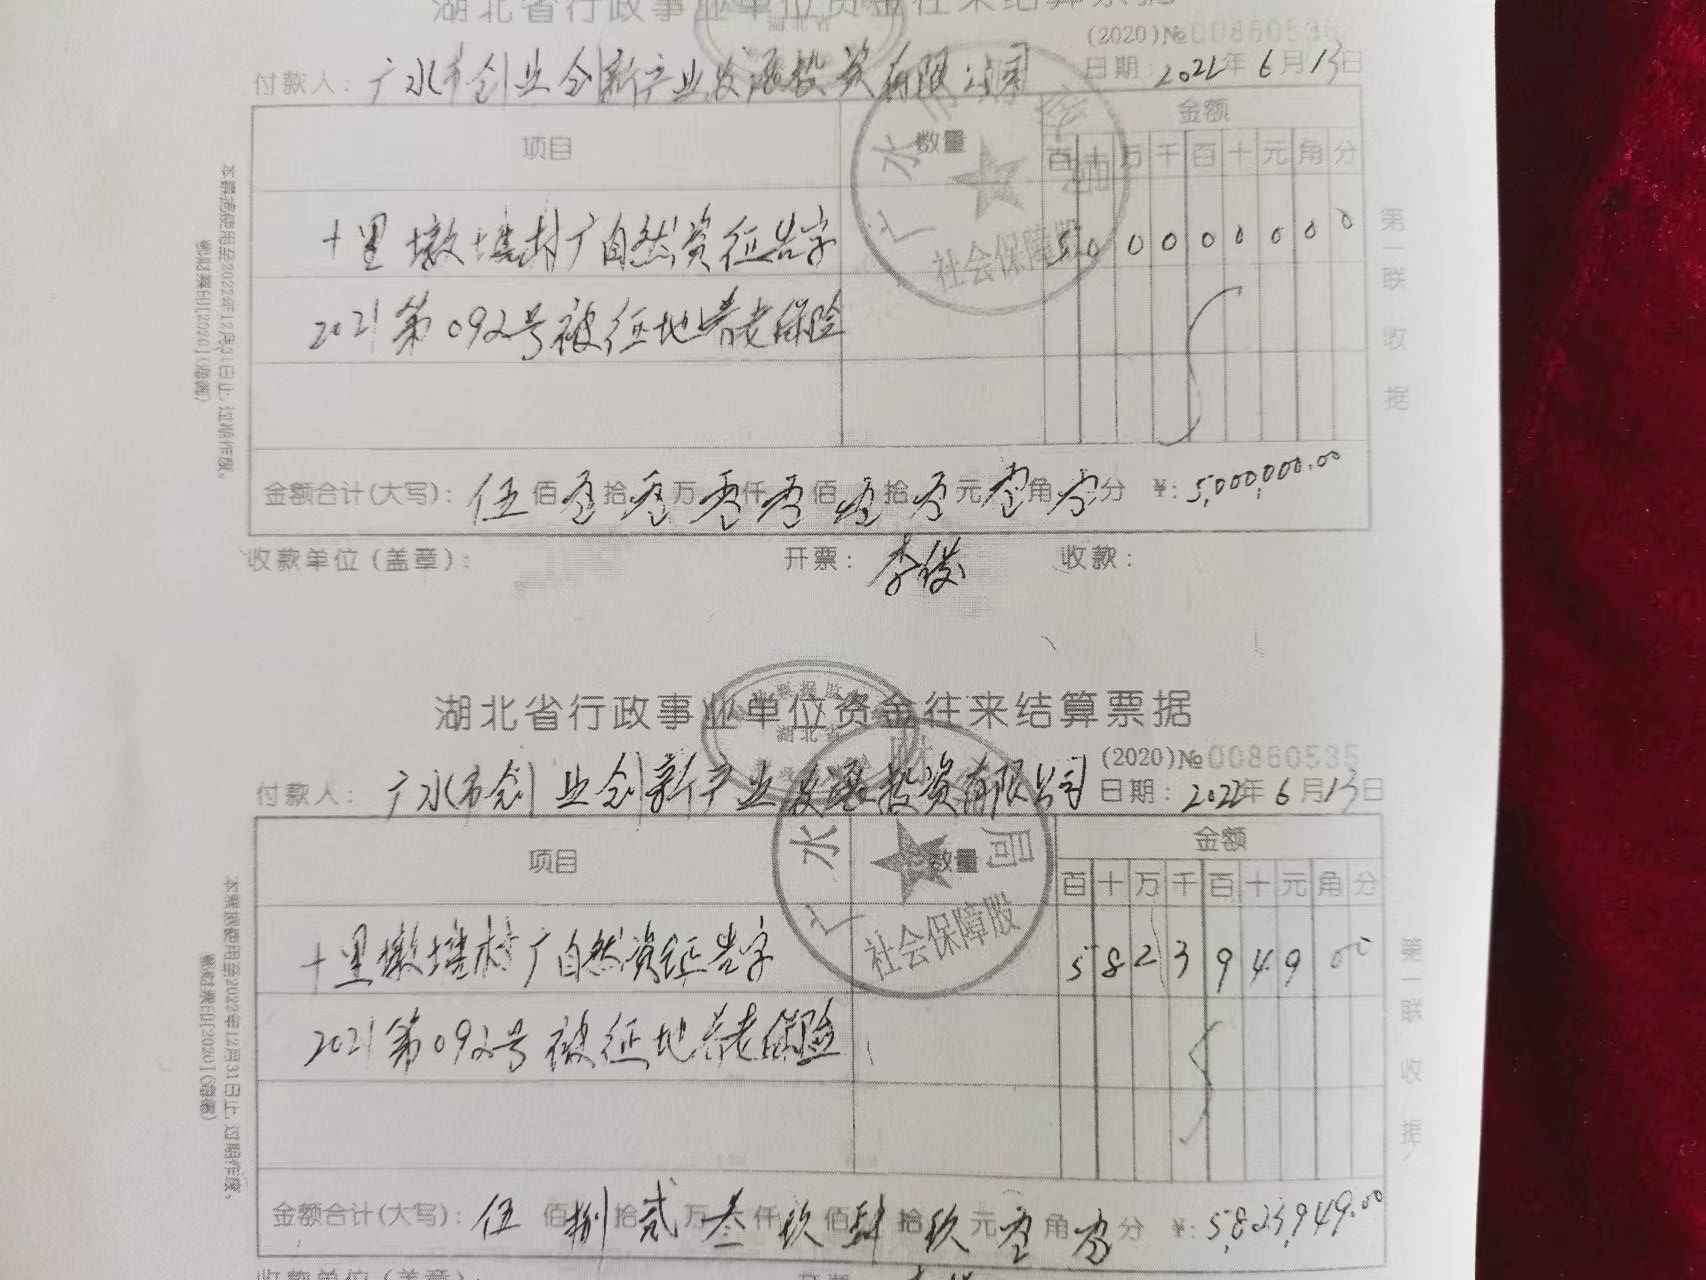 湖北省行政事业单位资金往来结算票据
(2020)№00860536
付款人：广水市创业创新产业发展投资有限公司 日期：2022年6月13日
项目 数量 金额
百十万千百十元角分
十里墩塘村广自然资征告字 500000000
2021第092号被征地养老保险
金额合计(大写)：伍佰零拾零万零仟零佰零拾零元零角零分 ¥：5,000,000.00
收款单位（盖章）： 开票：李俊 收款：
第一联 收据
本票据使用至2022年12月31日止，过期作废。
广水
社会保障股
湖北省行政事业单位资金往来结算票据
湖北省
(2020)№00860535
付款人：广水市创业创新产业发展投资有限公司 日期：2022年6月13日
项目 数量 金额
百十万千百十元角分
十里墩塘村广自然资征告字 582394900
2021第092号被征地养老保险
金额合计(大写)：伍佰捌拾贰万叁仟玖佰肆拾玖元零角零分 ¥：5,823,949.00
收款单位（盖章）：
第一联 收据
本票据使用至2022年12月31日止，过期作废。
广水 财 局
社会保障股